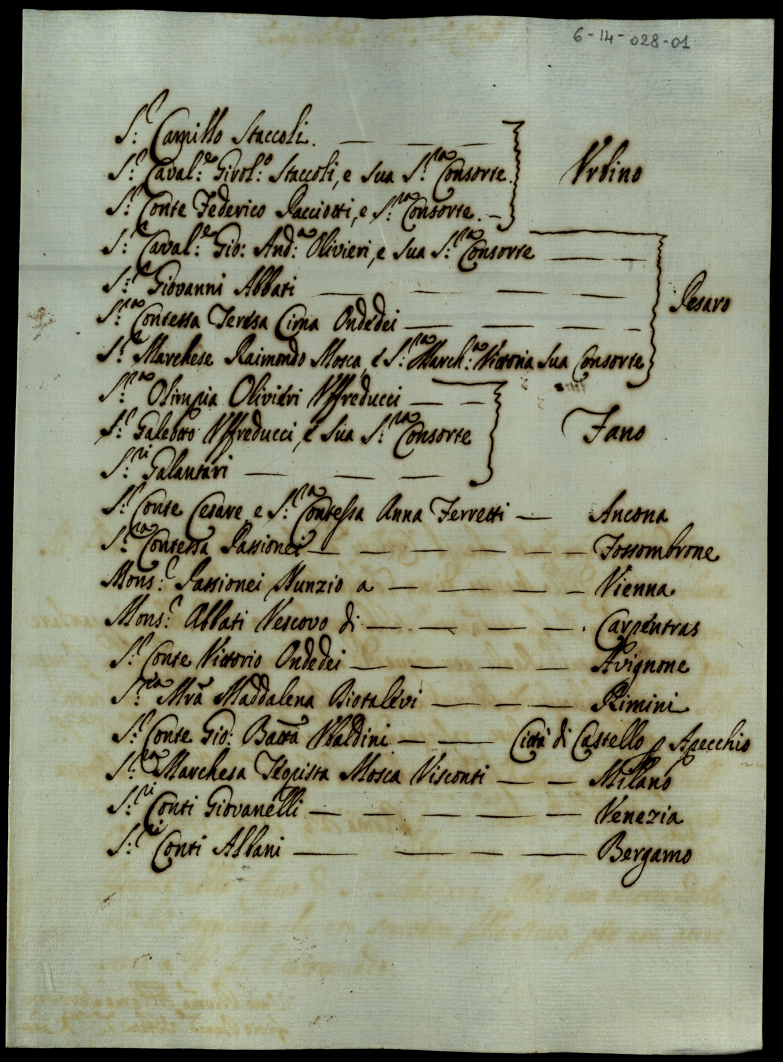 6-14-028-01
S.r Camillo Staccoli.
S.r Caval.e Girol.o Staccoli, e sua S.ra Consorte
S.r Conte Federico Pacciotti, e S.ra Consorte.
Urbino
S.r Caval.e Gio: And.a Olivieri, e sua S.ra Consorte
S.r Giovanni Abbati
S.ra Contessa Teresa Cima Ondedei
S.r Marchese Raimondo Mosca, e S.ra March.a Vittoria sua Consorte
Pesaro
S.ra Olimpia Olivieri Uffreducci
S.r Galeotto Uffreducci, e sua S.ra Consorte
S.ri Galantari
Fano
S.r Conte Cesare e S.ra Contessa Anna Ferretti — Ancona
S.ra Contessa Passionei — Fossombrone
Mons.r Passionei Nunzio a — Vienna
Mons.r Abbati Vescovo di — Carpentras
S.r Conte Vittorio Ondedei — Avignone
S.ra Mrã Maddalena — Rimini
S.r Conte Gio: Batt̃a Ubaldini — Città di Castello p Apecchio
S.ra Marchesa Teopista Mosca Visconti — Milano
S.ri Conti Giovanelli — Venezia
S.ri Conti Albani — Bergamo